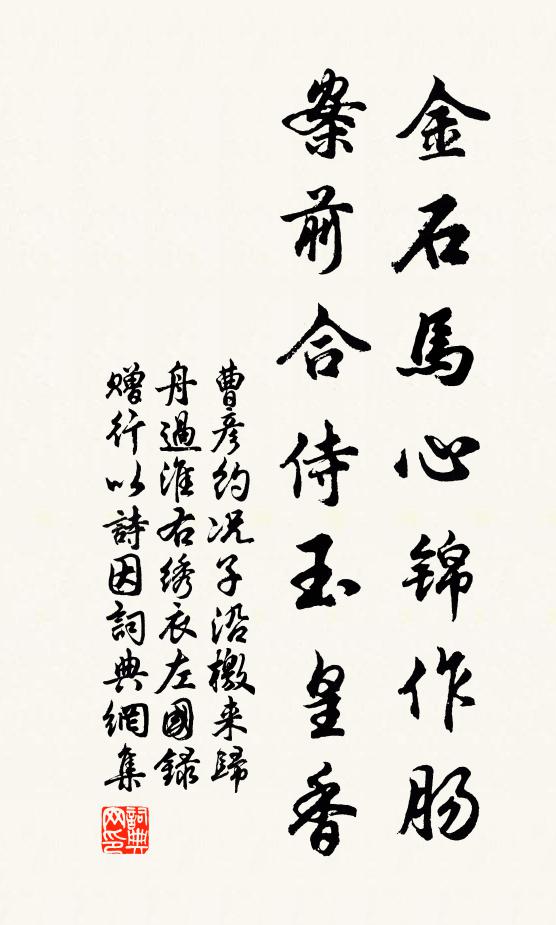 金石馬心錦作肠
案前合侍玉皇香
曹彦約况子沿檄来歸
舟過淮右綉衣左國録
贈行以詩因詞典網集
詞典网印